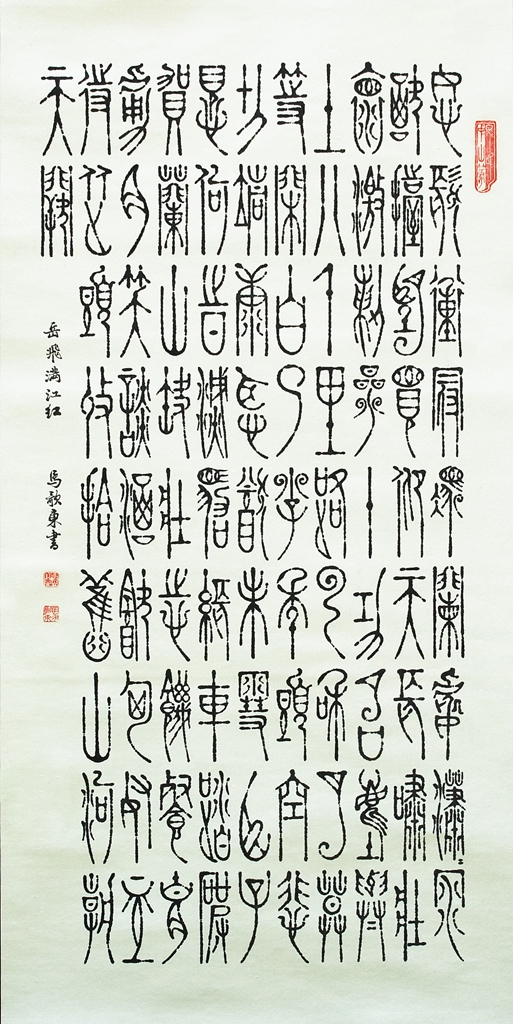 怒髮衝冠憑闌處瀟〻雨
歇擡望眼仰天長嘯壯
懷激烈三十功名塵與
土八千里路雲和月莫
等閒白了少年頭空悲
切靖康恥猶未雪臣子
恨何時滅駕長車踏破
賀蘭山缺壯志飢餐胡
虜肉笑談渴飲匈奴血
待從頭收拾舊山河朝
天闕
岳飛滿江紅 馬歌東書